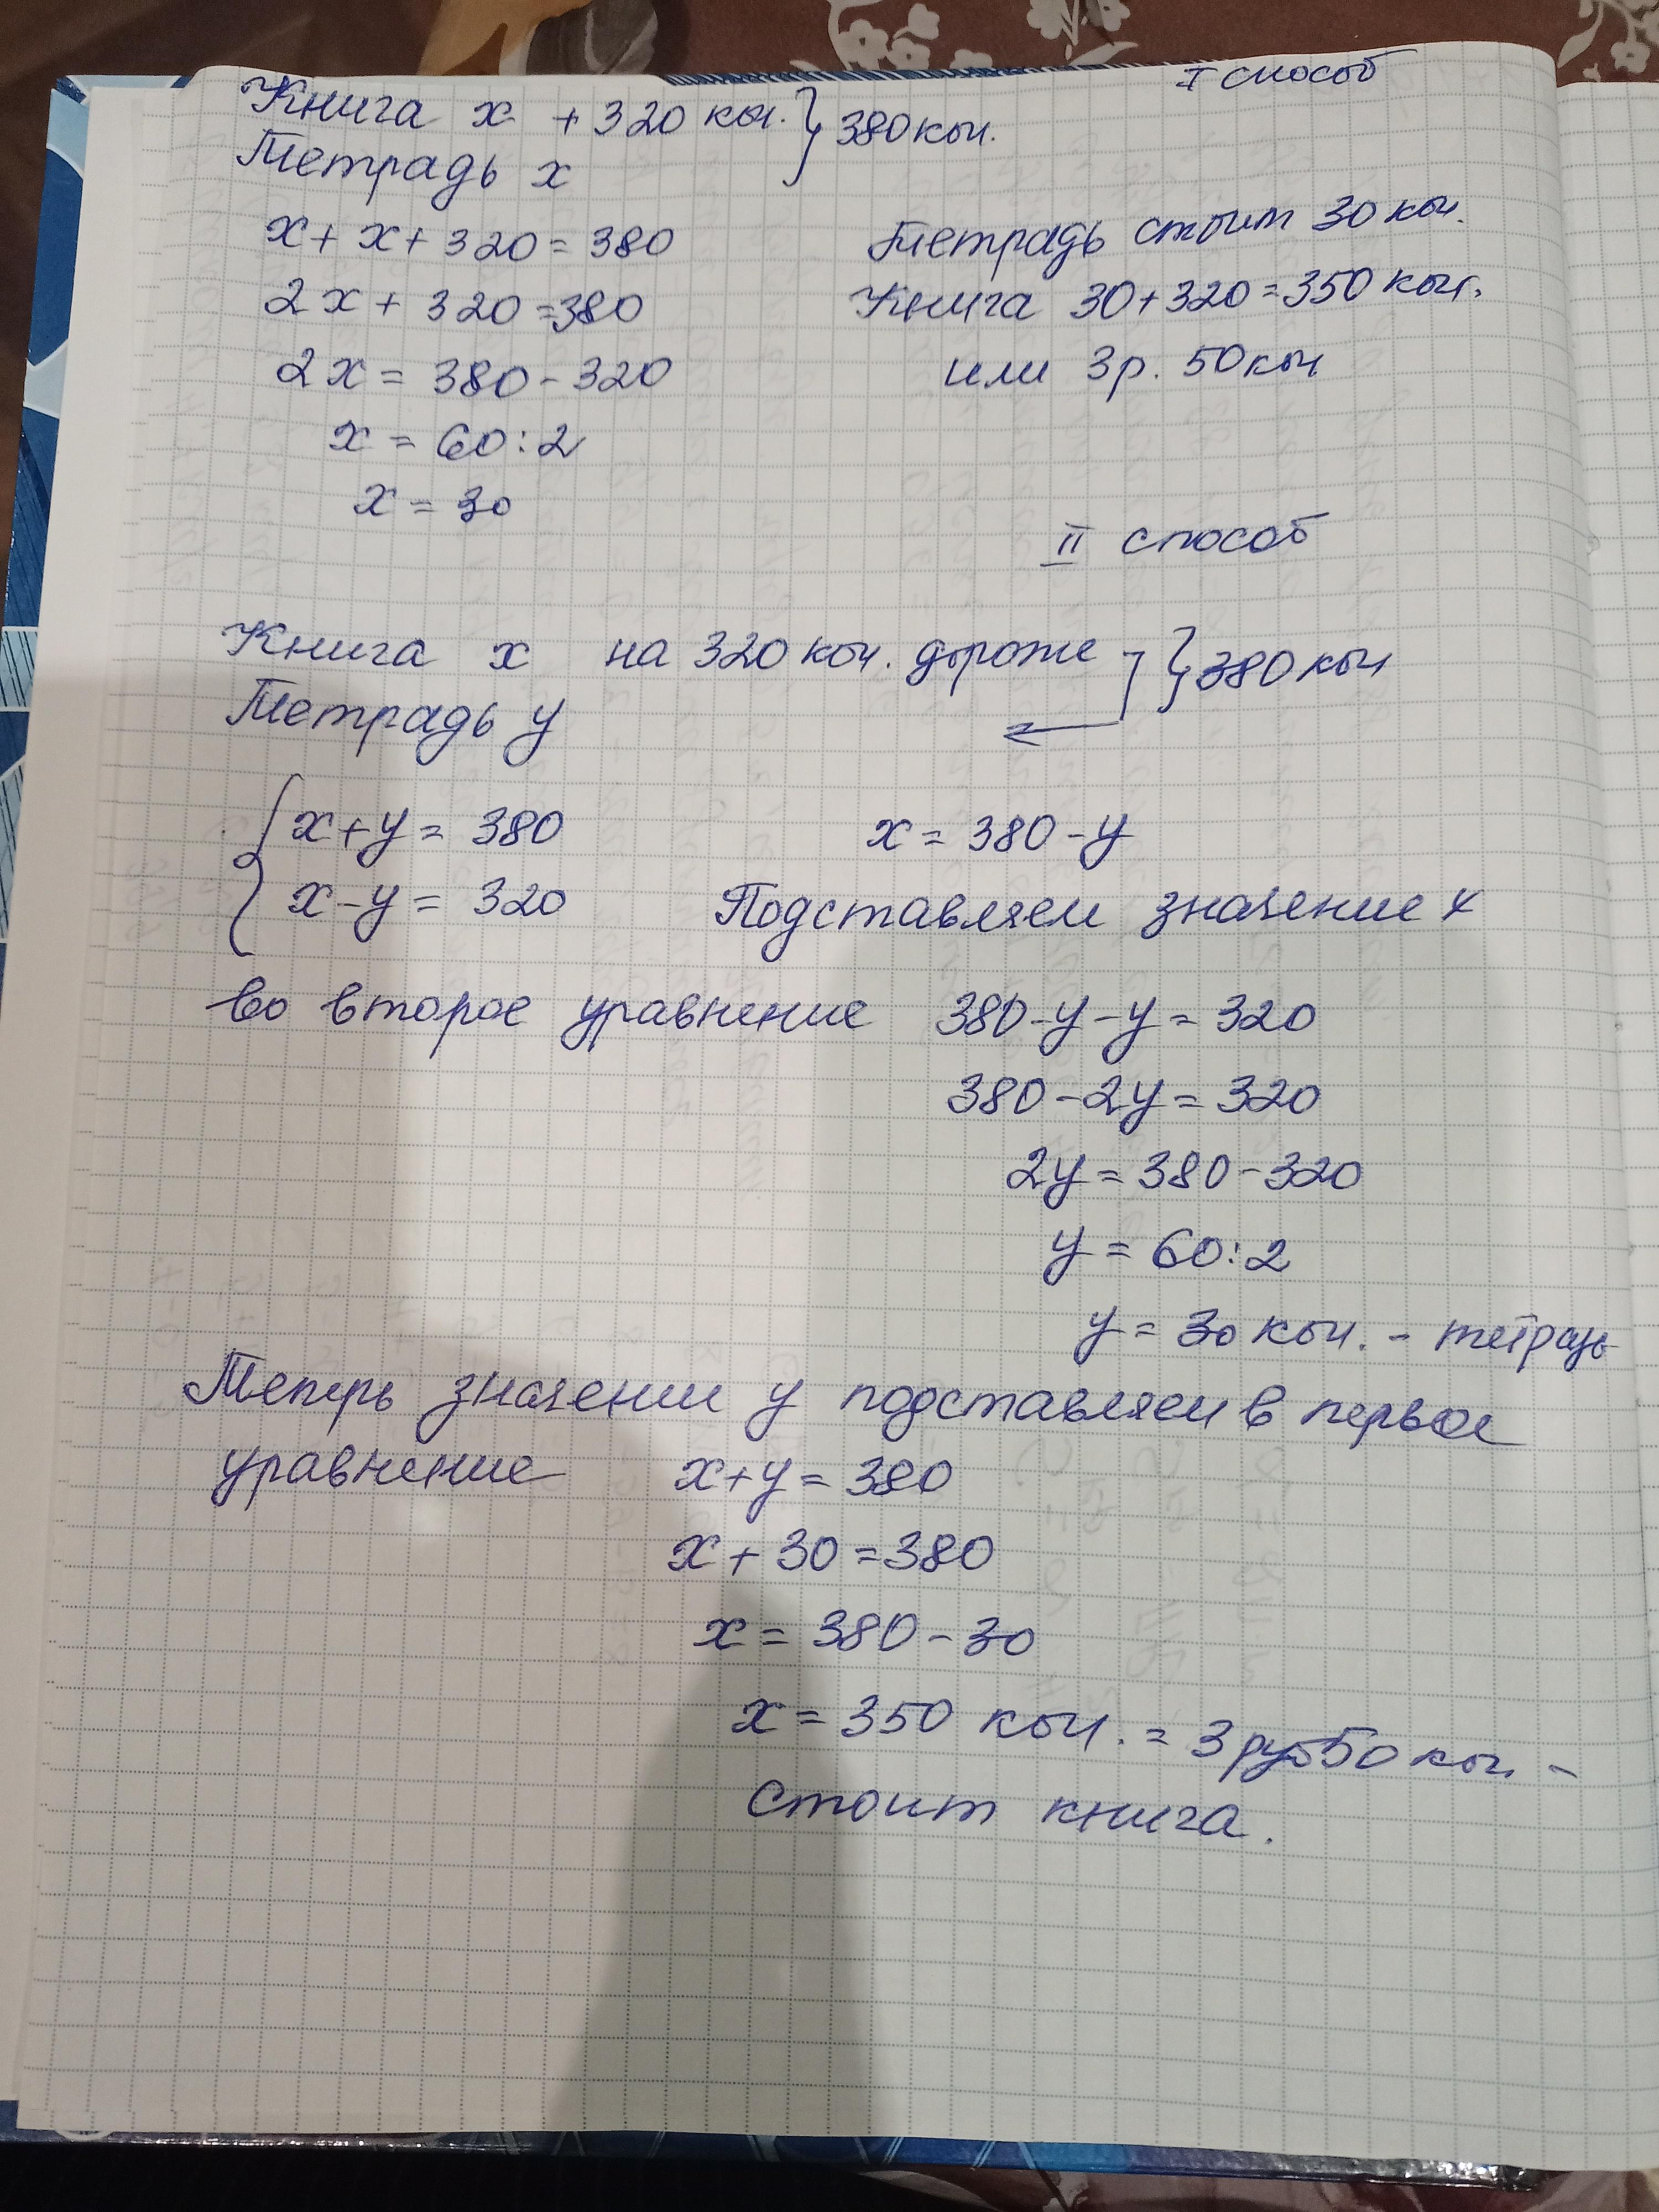 I способ
Книга x + 320 коп. } 380 коп.
Тетрадь x
x + x + 320 = 380
Тетрадь стоит 30 коп.
2x + 320 = 380
Книга 30 + 320 = 350 коп.
2x = 380 - 320
или 3р. 50 коп
x = 60 : 2
x = 30
II способ
Книга x на 320 коп. дороже } 380 коп
Тетрадь y
x + y = 380
x = 380 - y
x - y = 320
Подставляем значение x
во второе уравнение 380 - y - y = 320
380 - 2y = 320
2y = 380 - 320
y = 60 : 2
y = 30 коп. - тетрадь
Теперь значении y подставляем в первое
уравнение x + y = 380
x + 30 = 380
x = 380 - 30
x = 350 коп. = 3 руб 50 коп -
стоит книга.